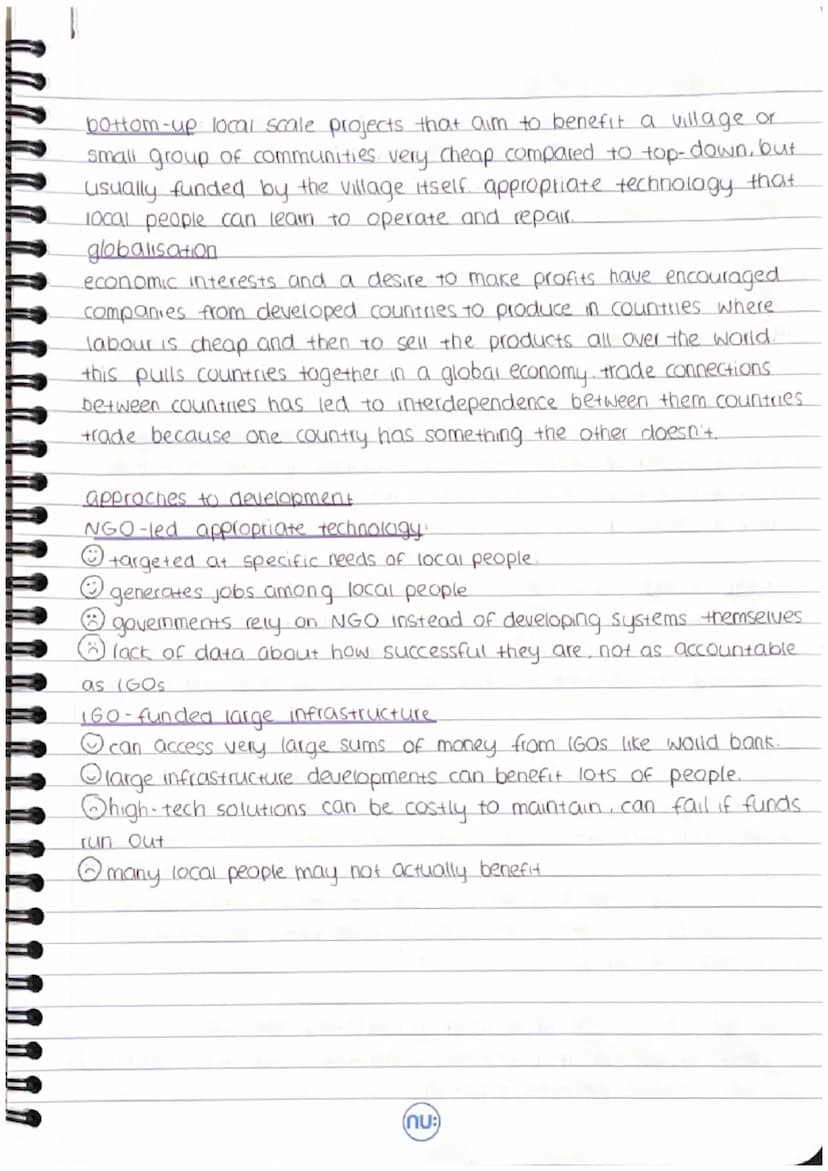 bottom-up: local scale projects that aim to benefit a village or
small group of communities. very cheap compared to top-down, but
usually funded by the village itself. appropriate technology that
local people can learn to operate and repair.
globalisation
economic interests and a desire to make profits have encouraged
companies from developed countries to produce in countries where
labour is cheap and then to sell the products all over the world.
this pulls countries together in a global economy. trade connections
between countries has led to interdependence between them. countries
trade because one country has something the other doesn't.
approches to development
NGO-led appropriate technology:
☺ targeted at specific needs of local people.
☺ generates jobs among local people
☹ governments rely on NGO instead of developing systems themselves
☹ lack of data about how successful they are, not as accountable
as IGOs
IGO-funded large infrastructure
☺ can access very large sums of money from IGOs like world bank.
☺ large infrastructure developments can benefit lots of people.
☹ high-tech solutions can be costly to maintain, can fail if funds
run out
☹ many local people may not actually benefit
nu: